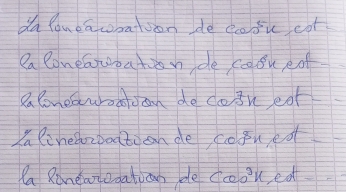 La linéarisation de cos³x est...
la linéarisation de cos³x est...
la linéarisation de cos³x est...
La linéarisation de cos³x est...
la linéarisation de cos³x est...